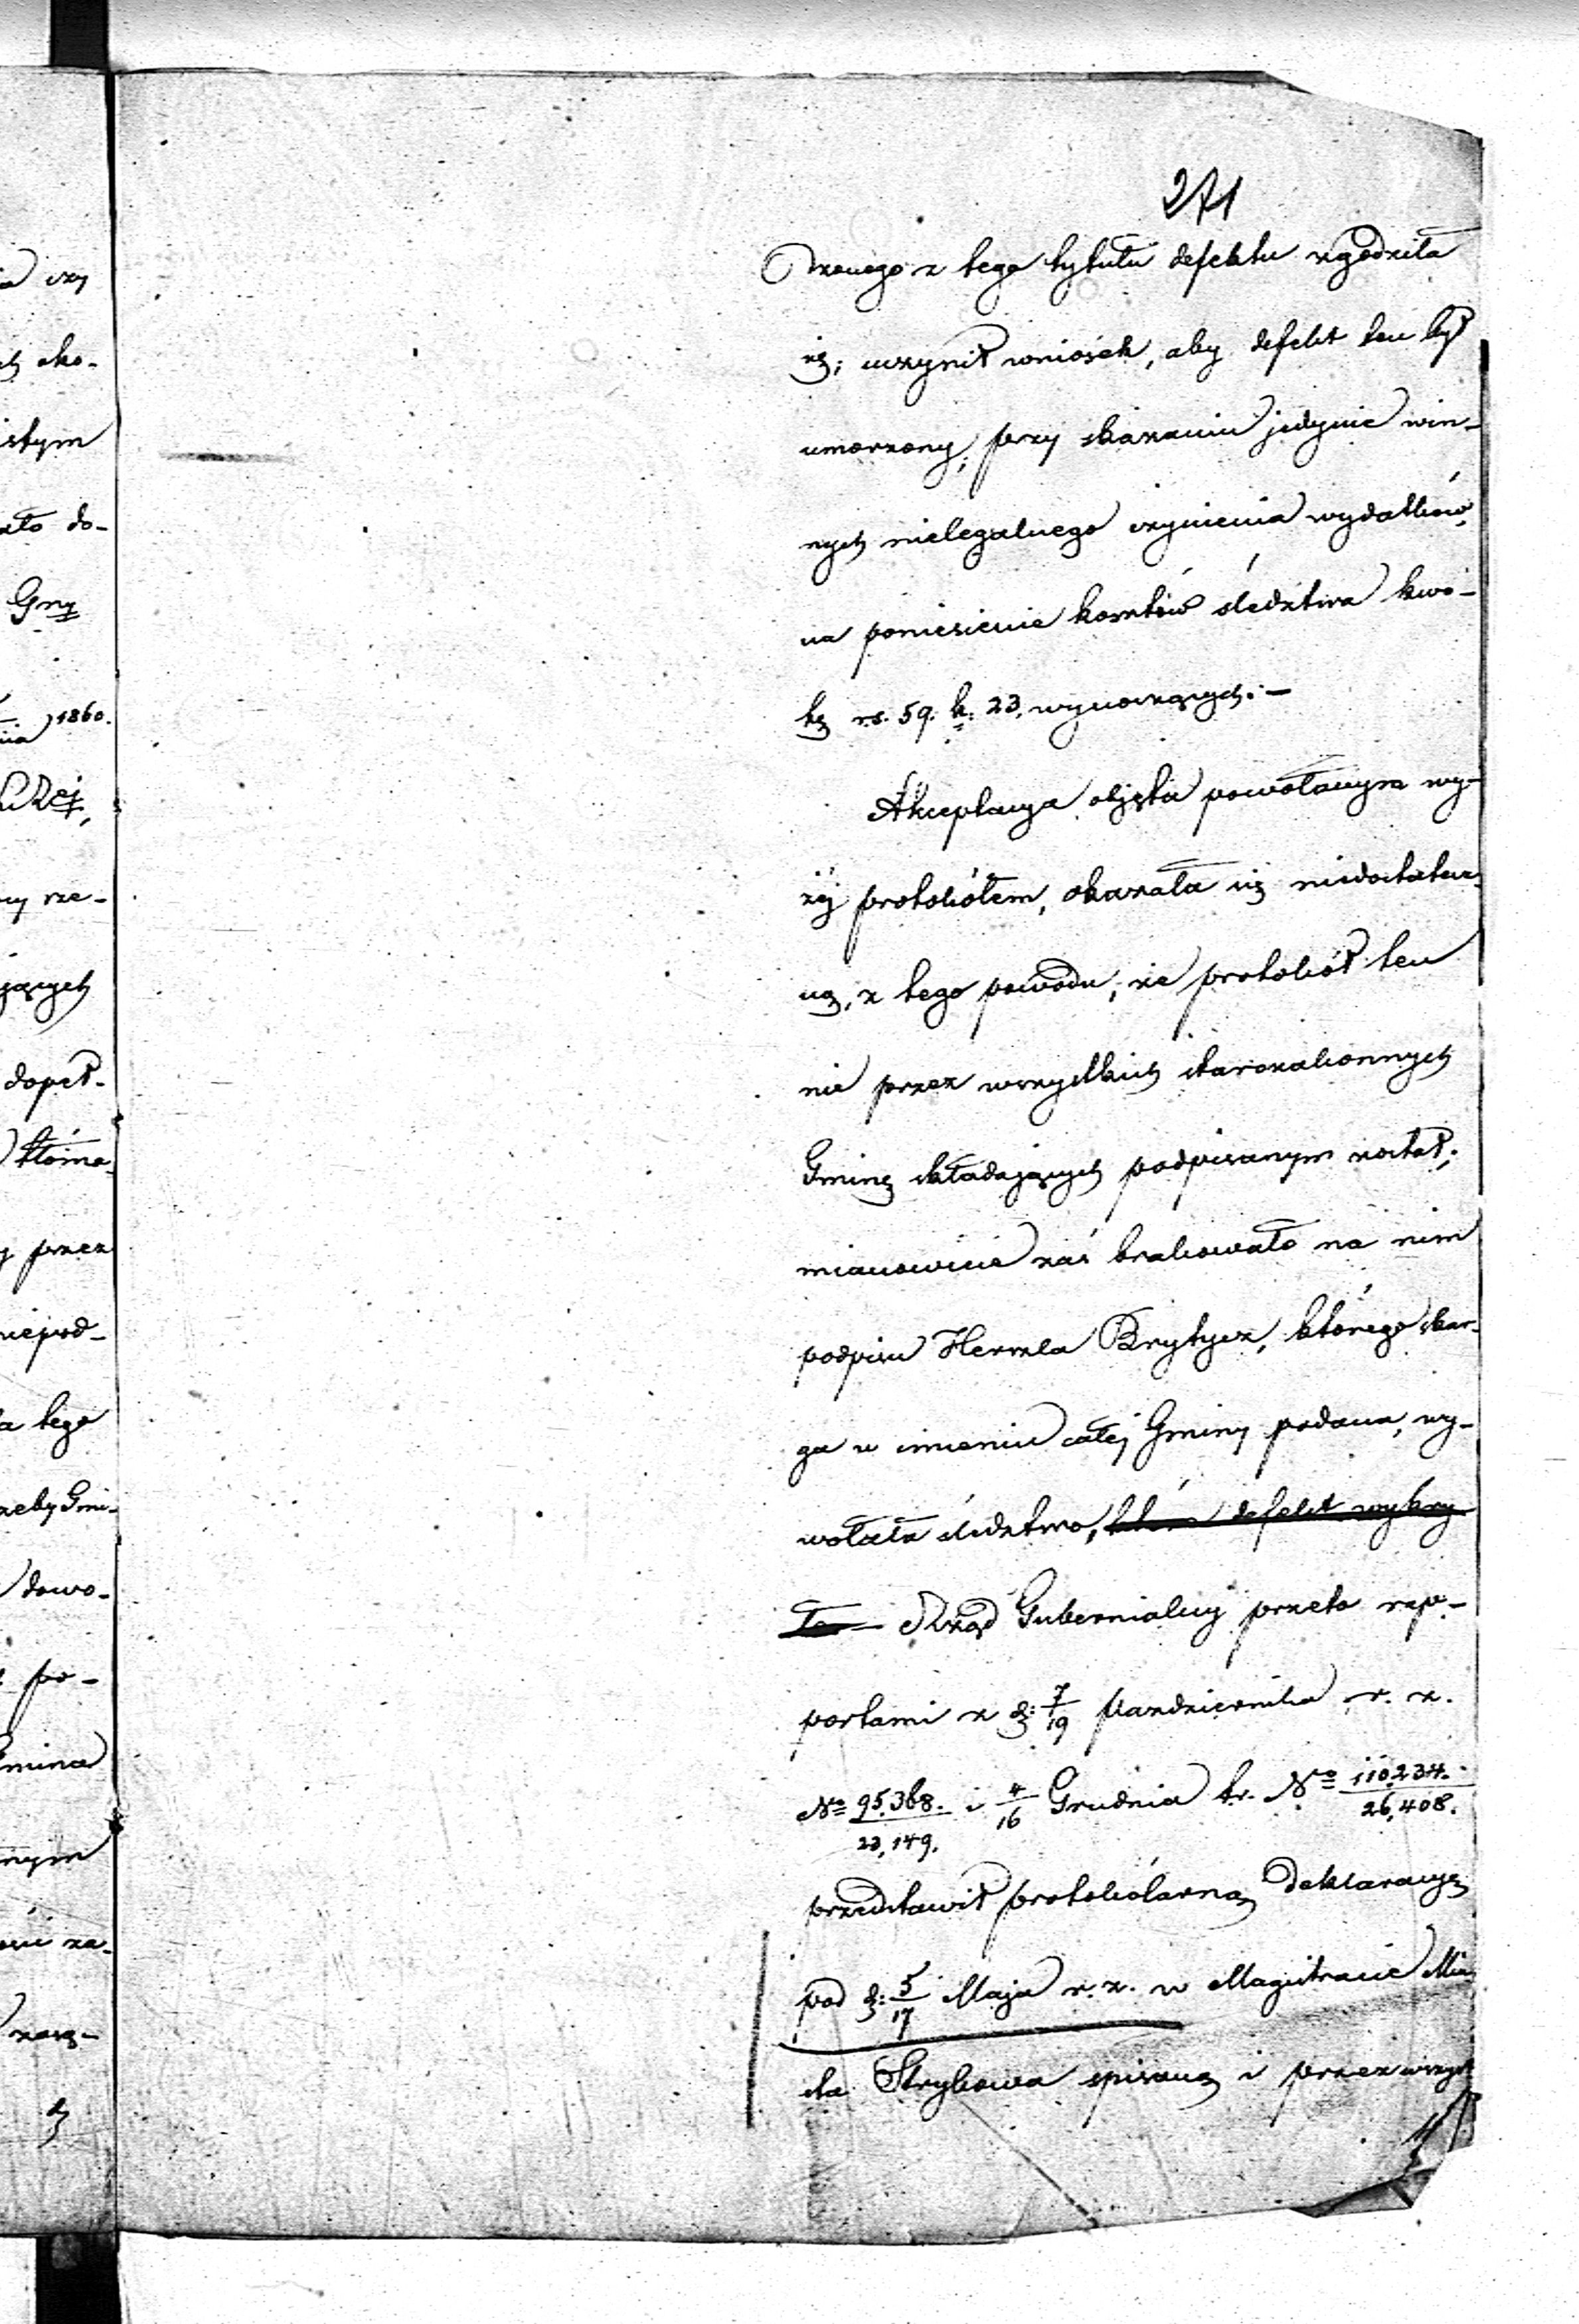 271
dzonego z tego tytułu defektu zgodziła
się; uczynił wniosek, aby defekt ten był
umorzony, przy skazaniu jedynie win-
nych nielegalnego czynienia wydatków,
na poniesienie kosztów śledztwa kwo-
tę rs. 59. k: 23. wynoszących.—
Akceptacya objęta powołanym wy-
żéj protokółem, okazała się niedostatecz-
ną, z tego powodu, że protokół ten
nie przez wszystkich starozakonnych
Gminę składających podpisanym został;
mianowicie zaś brakowało na nim
podpisu Herszla Brytycz, którego skar-
ga w imieniu całéj Gminy podana, wy-
wołała śledztwo, które defekt wykry
ło— Rząd Gubernialny przeto rap-
portami z d: 7/19 Października r. z.
No 95,368./23,149. i 4/16 Grudnia t.r. No 110,234./26,408.
przedstawił protokólarną deklaracyę
pod d: 5/17 Maja r. z. w Magistracie Mia-
sta Strykowa spisaną i przez wszyst
a czy
sko-
istym
ało do-
Gny
1860.
rze-
jących
dopeł-
tłóma-
przez
niepod-
a tego
żeby Gmi-
dowo-
po-
Gmina
nym
za-